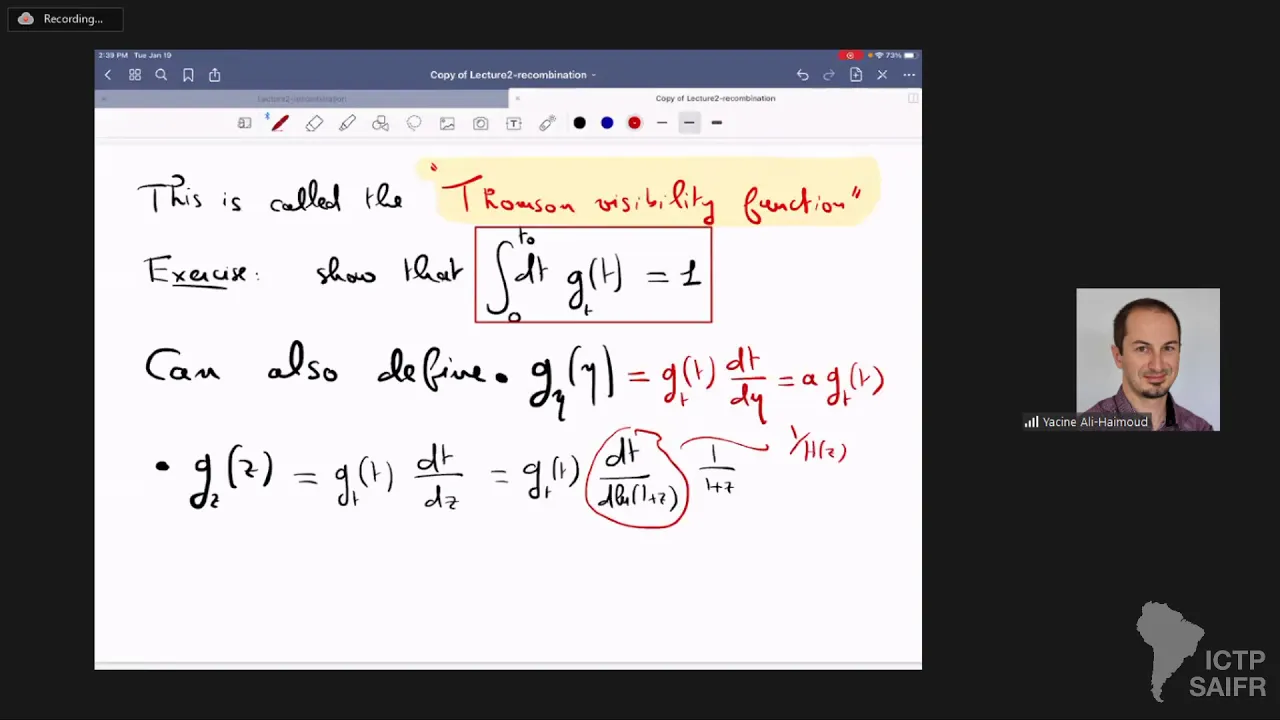 Recording...
2:39 PM Tue Jan 19
73%
Copy of Lecture2-recombination
Lecture2-recombination
Copy of Lecture2-recombination
This is called the "Thomson visibility function"
Exercise: show that ∫₀^{t₀} dt g_t(t) = 1
Can also define • g_η(η) = g_t(t) dt/dη = a g_t(t)
• g_z(z) = g_t(t) dt/dz = g_t(t) dt/dln(1+z) 1/1+z 1/H(z)
Yacine Ali-Haimoud
ICTP
SAIFR